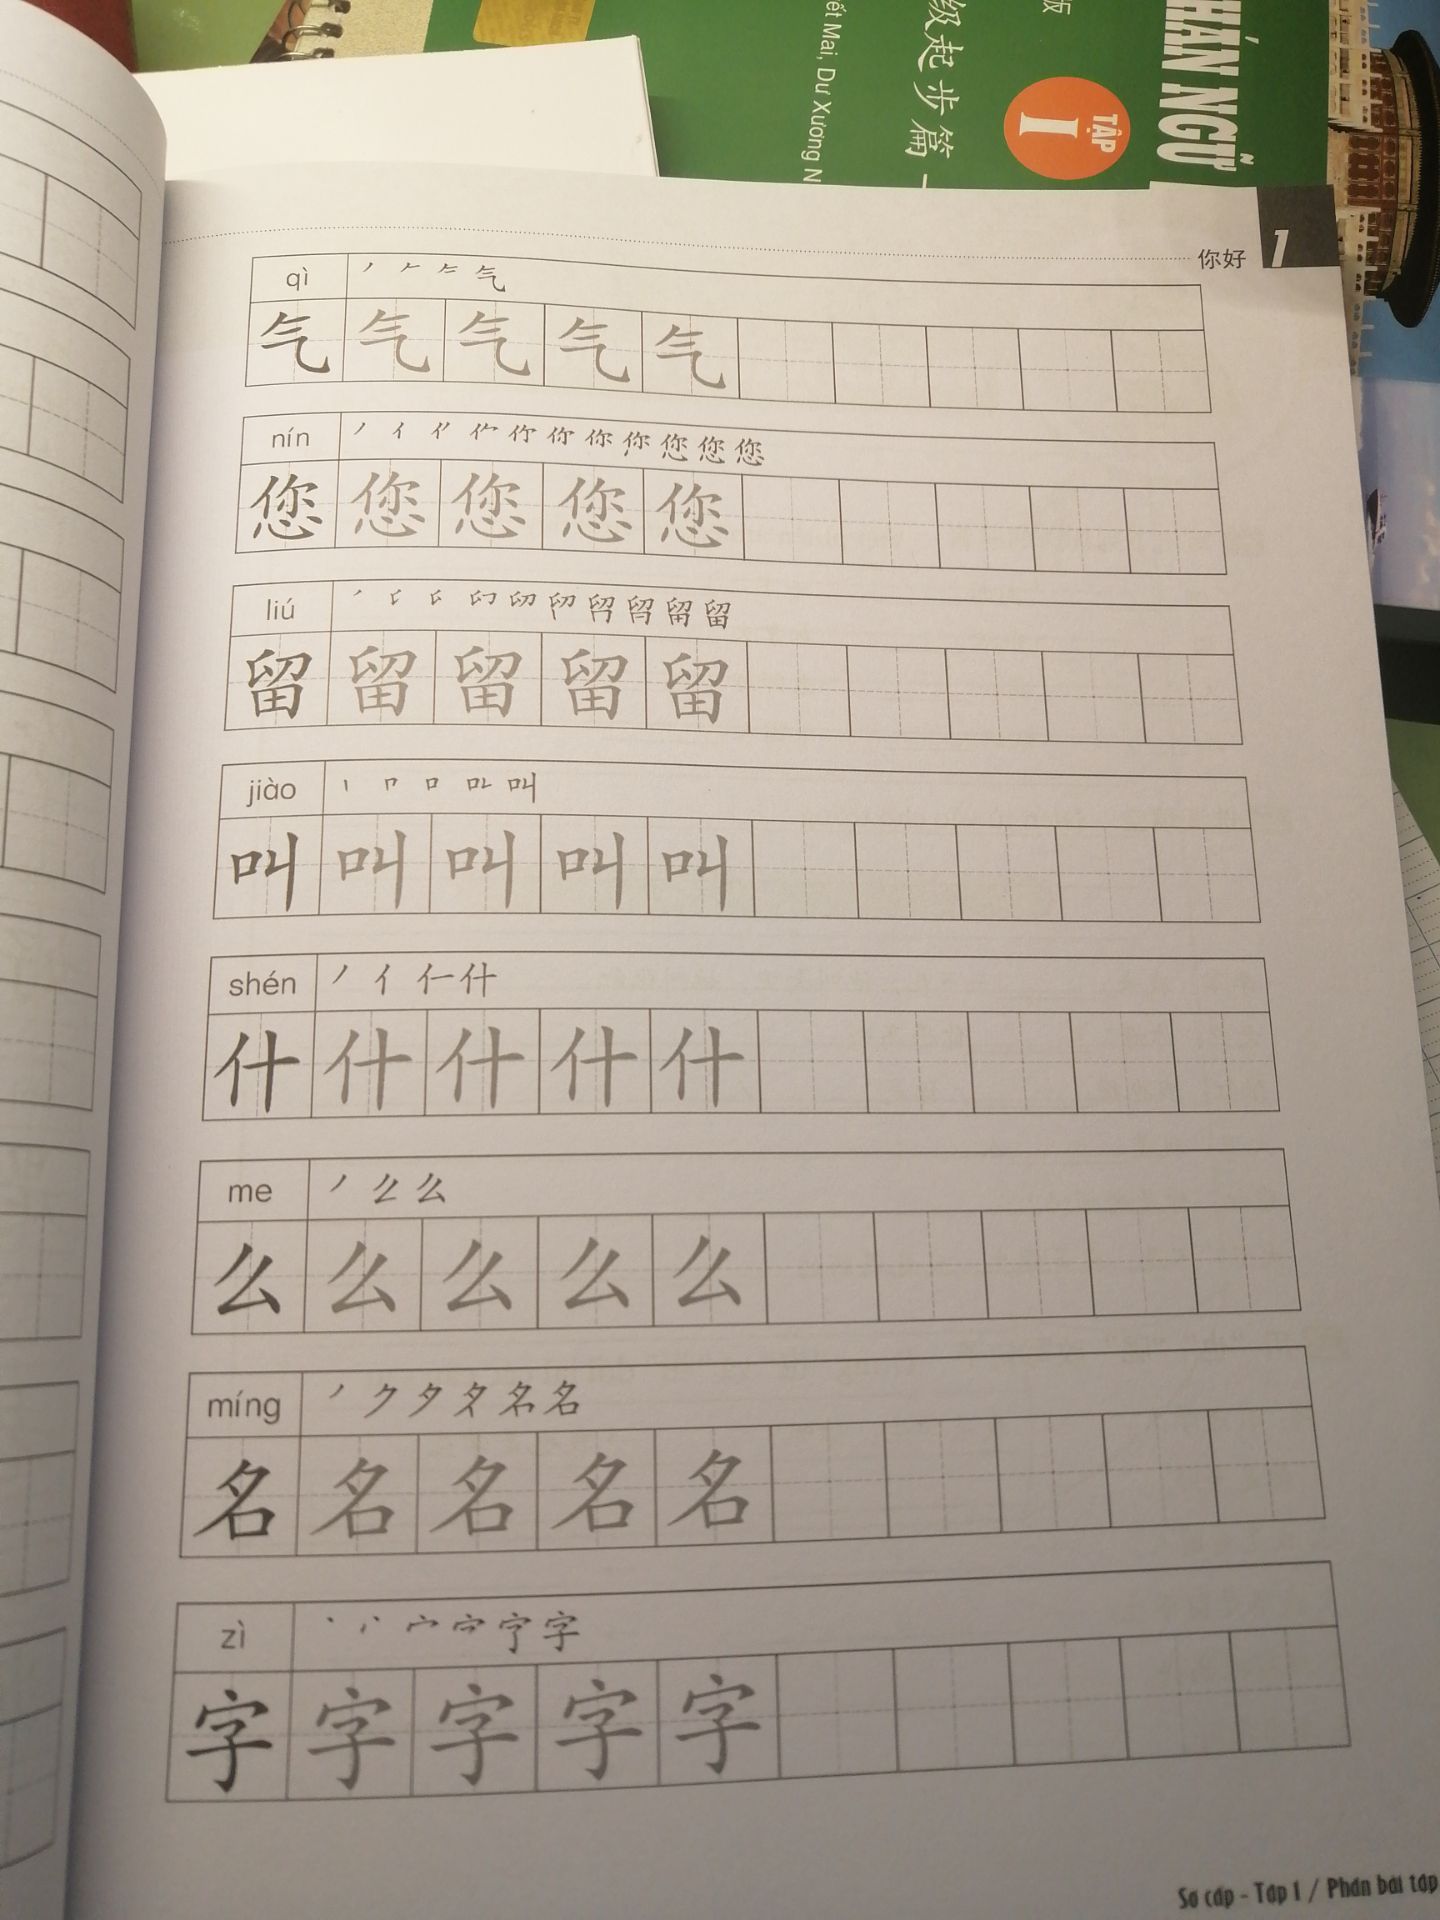 HÁN NGỮ
TẬP
I
版
级起步篇
ết Mai, Dư Xương N
你好 1
qì 丿 𠂉 气
气 气 气 气 气
nín 丿 亻 你 你 您 您 您
您 您 您 您 您
liú 留 留
留 留 留 留 留
jiào 丨 口 叫
叫 叫 叫 叫 叫
shén 丿 亻 什
什 什 什 什 什
me 丿 么
么 么 么 么 么
míng 丿 ク 夕 名 名
名 名 名 名 名
zì 丶 宀 字
字 字 字 字 字
Sơ cấp - Tập 1 / Phần bài tập